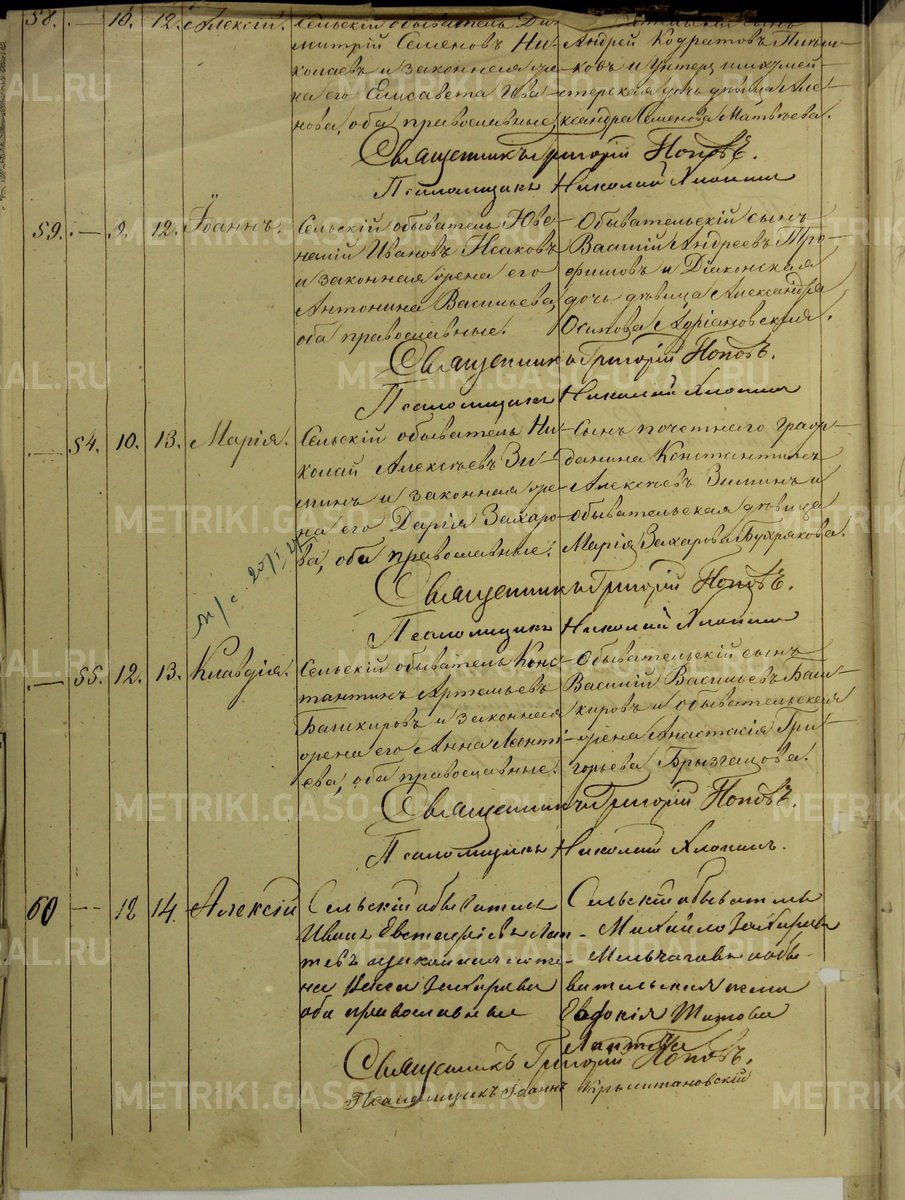 58. — 10. 12. Алексій. Сельскій обыватель Ди-
митрій Семеновъ Ни-
колаевъ и законная же-
на его Елисавета Ива-
нова, оба православные.
сынъ
Андрей Кодратовъ
ковъ и Унтеръ шихтмей-
стерская дочь дѣвица Але-
ксандра Семенова Матвѣева.
Священникъ Григорій Поповъ.
Псаломщикъ Николай Хлопинъ
59. — 9. 12. Іоаннъ. Сельскій обыватель Юве-
налій Ивановъ Исаковъ
и законная жена его
Антонина Васильева,
оба православные.
Обывательскій сынъ
Василій Андреевъ Тро-
фимовъ и Діаконская
дочь дѣвица Александра
Осипова Адріановская.
Священникъ Григорій Поповъ.
Псаломщикъ Николай Хлопинъ
— 54. 10. 13. Марія. Сельскій обыватель Ни-
колай Алексѣевъ Зи-
минъ и законная же-
на его Дарія Захаро-
ва, оба православные.
Сынъ почетнаго граж-
данина Константинъ
Алексѣевъ Зиминъ и
обывательская дѣвица
Марія Захарова Бухрякова.
Священникъ Григорій Поповъ.
Псаломщикъ Николай Хлопинъ
— 55. 12. 13. Клавдія. Сельскій обыватель Конс-
тантинъ Артемьевъ
Башкировъ и законная
жена его Анна Ланті-
ева, оба православные.
Обывательскій сынъ
Василій Васильевъ Баш-
кировъ и обывательская
жена Анастасія Гри-
горьева Брызгалова.
Священникъ Григорій Поповъ.
Псаломщикъ Николай Хлопинъ.
60 — 12 14. Алексій Сельскій обыватель
Иванъ Евстафіевъ Лап-
тевъ и законная же-
на Захарова
оба православные
Сельскій обыватель
Михайло Захаровъ
Молчаговъ и обы-
вательская жена
Евдокія Титова
Лаптева
Священникъ Григорій Поповъ.
Псаломщикъ Іоаннъ Крыштановскій
METRIKI.GASO-URAL.RU